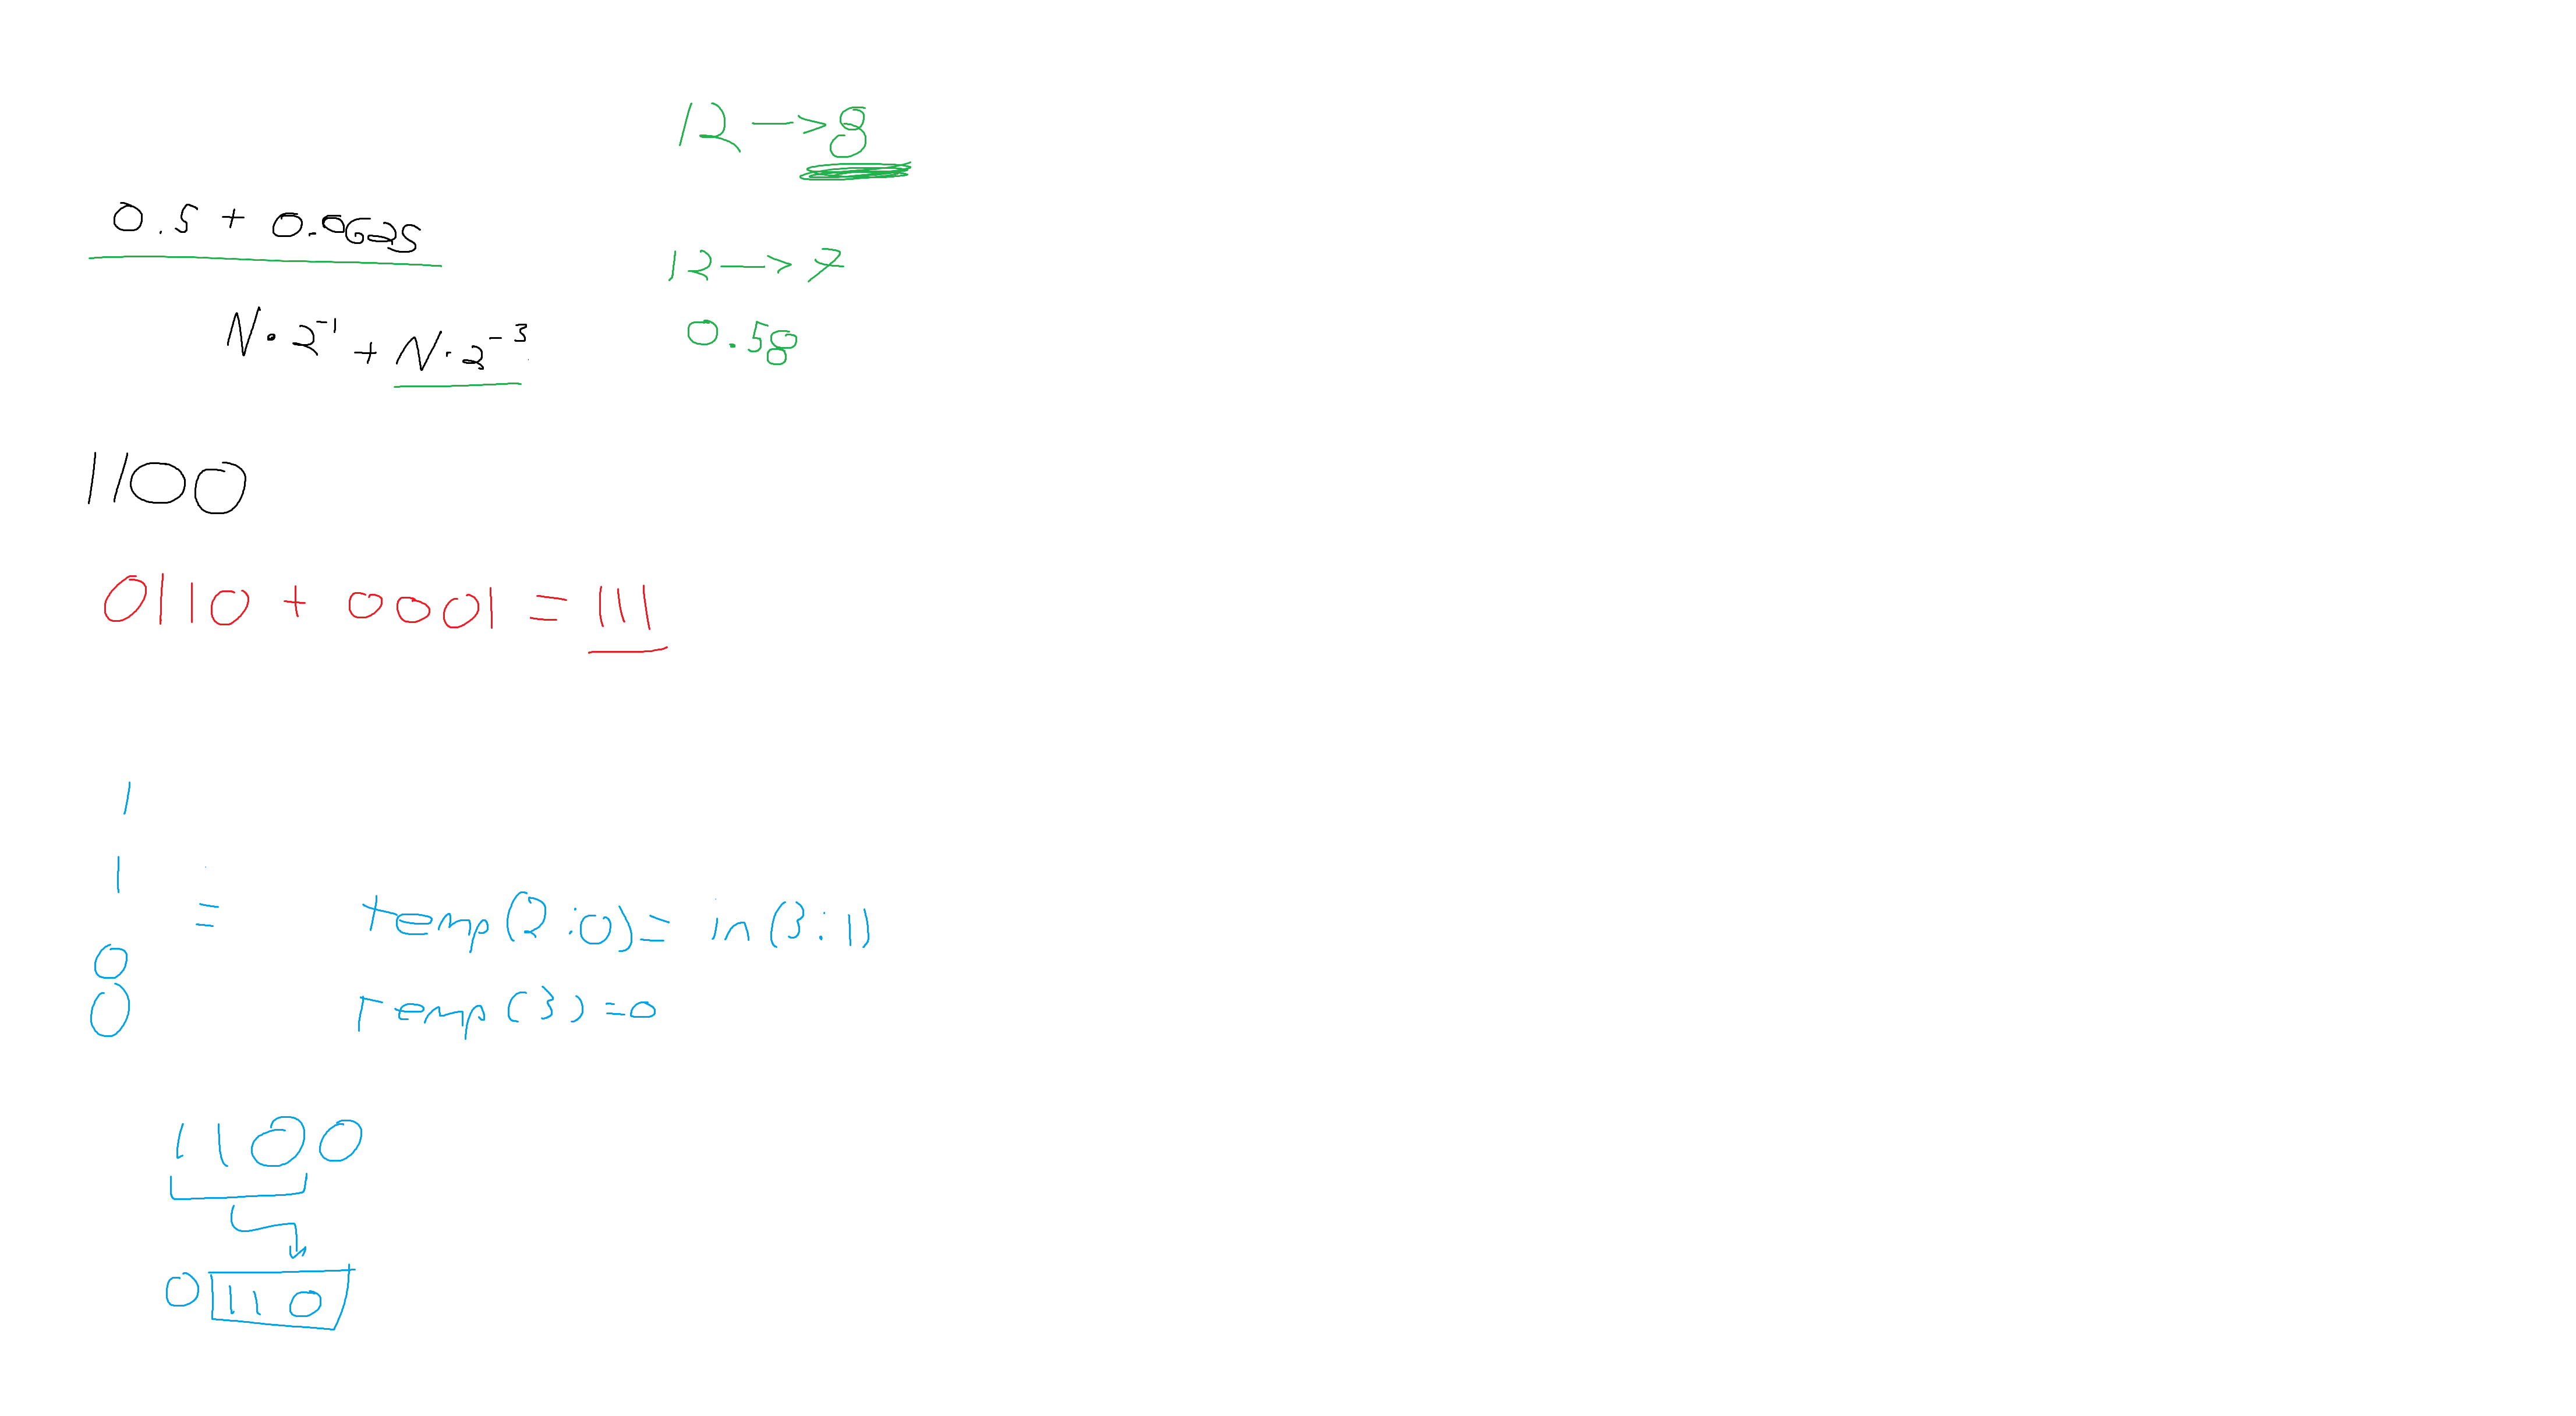 12 —> 8
0.5 + 0.0625
12 —> 7
N · 2⁻¹ + N · 2⁻³
0.58
1100
0110 + 0001 = 111
1
1
=
temp(2:0) = in(3:1)
0
0
temp(3) = 0
1100
0110